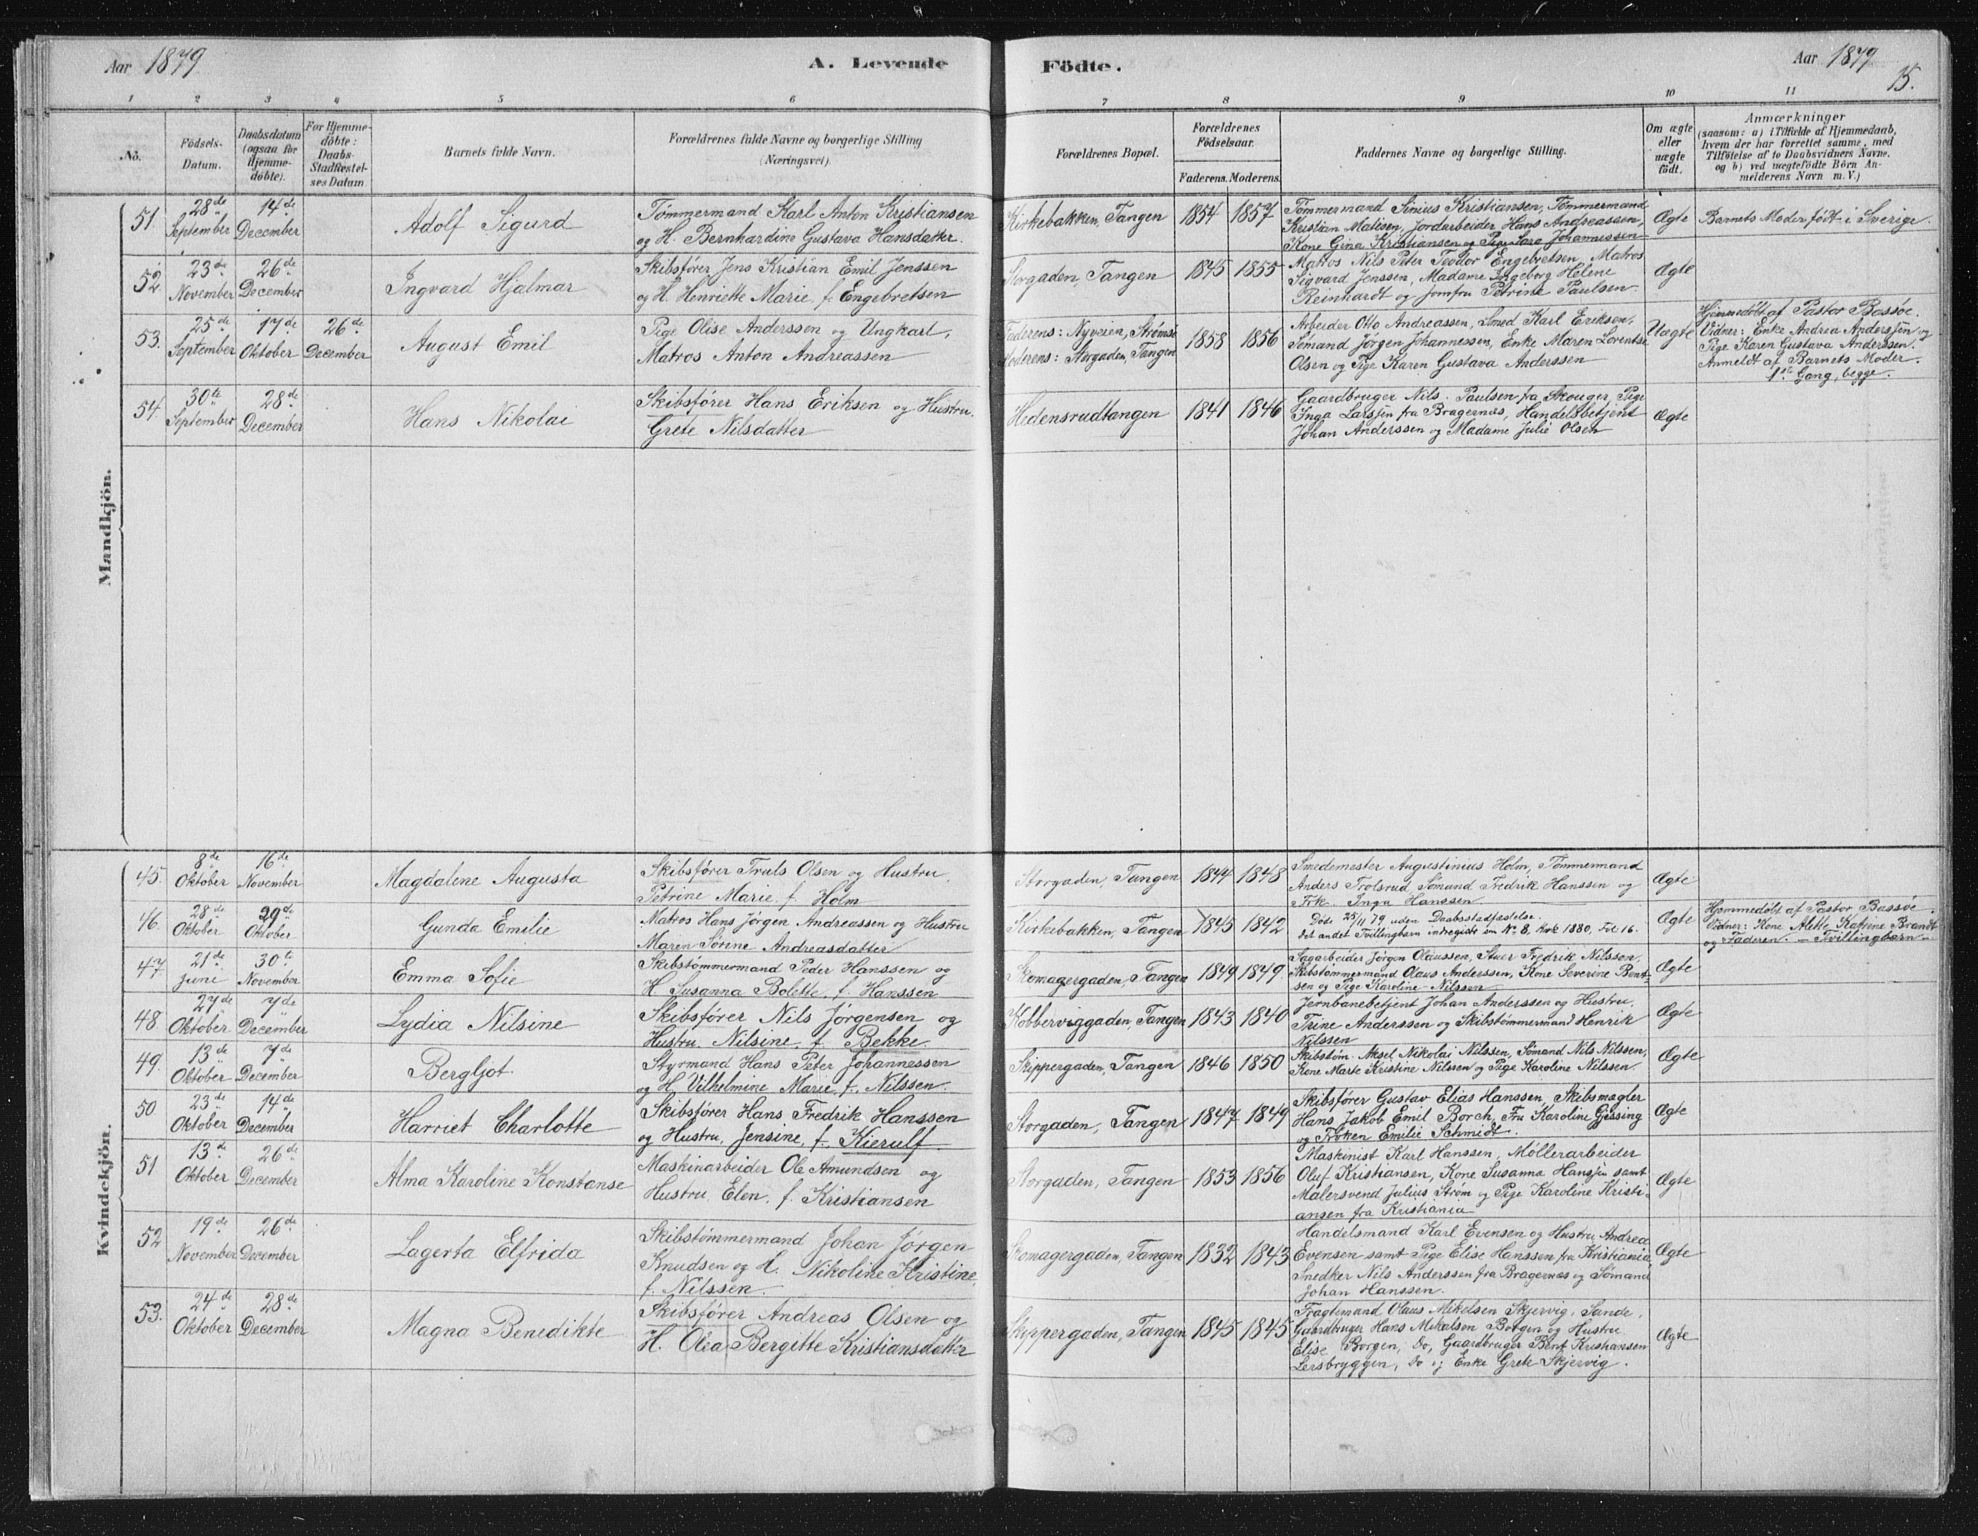 Aar 1879
A. Levende
Födte.
Aar 1879
15.
1 2 3 4 5 6 7 8 9 10 11
No.
Födsels-
Datum.
Daabsdatum
(ogsaa for
Hjemme-
döbte).
For Hjemme-
döbte:
Daabs-
Stadfæstel-
ses Datum
Barnets fulde Navn.
Forældrenes fulde Navne og borgerlige Stilling
(Næringsvei).
Forældrenes Bopæl.
Forældrenes
Födselsaar.
Faderens. Moderens.
Faddernes Navne og borgerlige Stilling.
Om ægte
eller
uægte
födt.
Anmærkninger
(saasom: a) i Tilfælde af Hjemmedaab,
hvem der har forrettet samme, med
Tilföielse af to Daabsvidners Navne,
og b) ved uægtefödte Börn An-
melderens Navn m. V.)
Mandkjön.
51.
28de
September
14de
December
Adolf Sigurd
Tømmermand Karl Anton Kristiansen
og H. Bernhardine Gustava Hansdatter.
Kirkebakken, Tangen
1854 1857
Tømmermand Sinius Kristiansen, Tømmermand
Kristian Matisen, Jordarbeider Hans Andreassen,
Kone Gina Kristiansen og Pige Sara Johannessen
Ægte
Barnets Moder født i Sverige.
52
23de
November
26de
December
Ingvard Hjalmar
Skibsfører Jens Kristian Emil Jenssen
og H. Henriette Marie f. Engebretsen
Storgaden, Tangen
1845 1855
Matros Nils Peter Teodor Engebretsen, Matros
Sigvard Jenssen, Madame Ingeborg Helene
Reinhardt og Jomfru Petrine Paulsen.
Ægte
53.
25de
September
17de
Oktober
26de
December
August Emil
Pige Olise Anderssen og Ungkarl,
Matros Anton Andreassen
Faderens: Nyveien, Strømsø
Moderens: Storgaden, Tangen
1858 1856
Arbeider Otto Andreassen, Smed Karl Eriksen,
Sømand Jørgen Johannessen, Enke Maren Lorentse
Olsen og Pige Karen Gustava Anderssen
Uægte
Hjemmedøbt af Pastor Bassøe.
Vidner: Enke Andrea Anderssen og
Pige Karen Gustava Anderssen.
Anmeldt af Barnets Moder.
1ste Gang, begge.
54
30te
September
28de
December
Hans Nikolai
Skibsfører Hans Eriksen og Hustru
Grete Nilsdatter
Hedensrudtangen
1841 1846
Gaardbruger Nils Paulsen fra Skouger, Pige
Inga Larssen fra Bragernæs, Handelsbetjent
Johan Anderssen og Madame Julie Olsen
Ægte
Kvindekjön.
45.
8de
Oktober
16de
November
Magdalene Augusta
Skibsfører Truls Olsen og Hustru
Petrine Marie f. Holm
Storgaden, Tangen
1844 1848
Smedemester Augustinius Holm, Tømmermand
Anders Trolsrud, Sømand Fredrik Hanssen og
Frk. Inga Hanssen
Ægte
46.
28de
Oktober
29de
Oktober
Gunda Emilie
Matros Hans Jørgen Andreassen og Hustru
Maren Sørine Andreasdatter
Kirkebakken, Tangen
1845 1842
Døde 25/11 79 uden Daabsstadfæstelse.
Det andet Tvillingbarn indregistr. em No 8, Kirk 1880, Fol 16.
Ægte
Hjemmedøbt af Pastor Bassøe.
Vidner: Kone Alette Katrine Brandt
og Faderen. — Tvillingbarn —
47
21de
Juni
30te
November
Emma Sofie
Skibstømmermand Peder Hanssen og
H. Susanna Bolette, f. Hanssen
Skomagergaden, Tangen
1849 1849
Sagarbeider Jørgen Olaussen, Stuer Fredrik Nilsson,
Skibstømmermand Olaus Anderssen, Kone Severine Bent-
sen og Pige Karoline Nilssen
Ægte
48
27de
Oktober
7de
December
Lydia Nilsine
Skibsfører Nils Jørgensen og
Hustru, Nilsine, f. Bekke.
Kobberviggaden, Tangen
1843 1840
Jernbanebetjent Johan Anderssen og Hustru,
Trine Anderssen og Skibstømmermand Henrik
Nilssen
Ægte
49.
13de
Oktober
7de
December
Bergljot.
Styrmand Hans Peter Johannessen
og H. Vilhelmine Marie f. Nilssen.
Skippergaden, Tangen
1846 1850
Skibstøm. Aksel Nikolai Nilssen, Sømand Nils Nilssen,
Kone Marte Kristine Nilssen og Pige Karoline Nilssen.
Ægte
50
23de
Oktober
14de
December
Harriet Charlotte
Skibsfører Hans Fredrik Hanssen
og Hustru, Jensine, f. Kierulf.
Storgaden, Tangen
1847 1849
Skibsfører Gustav Elias Hanssen, Skibsmægler
Hans Jakob Emil Borch, Fru Karoline Gjessing
og Frøken Emilie Schmidt.
Ægte
51
13de
Oktober
26de
December
Alma Karoline Konstanse
Maskinarbeider Ole Amundsen og
Hustru, Elen, f. Kristiansen
Storgaden, Tangen
1853 1856
Maskinist Karl Hanssen, Møllerarbeider
Oluf Kristiansen, Kone Susanna Hanssen samt
Malersvend Julius Strøm og Pige Karoline Kristi-
ansen fra Kristiania
Ægte
52
19de
November
26de
December
Lagerta Elfrida
Skibstømmermand Johan Jørgen
Knudsen og H. Nikoline Kristine,
f. Nilssen.
Skomagergaden, Tangen
1832 1843
Handelsmand Karl Evensen og Hustru Andrea
Evensen samt Pige Elise Hanssen fra Kristiania
Snedker Nils Anderssen fra Bragernæs og Sømand
Johan Hanssen.
Ægte
53.
24de
Oktober
28de
December
Magna Benedikte
Skibsfører Andreas Olsen og
H. Olea Bergitte Kristiansdatter
Skippergaden, Tangen
1845 1845
Fragtemand Olaus Mikelsen Skjervig, Sande,
Gaardbruger Hans Mikalsen Borgen og Hustru
Elise Borgen, Do, Gaardbruger Bent Kristiansen
Lersbryggen, Do og Enke Grete Skjervig.
Ægte